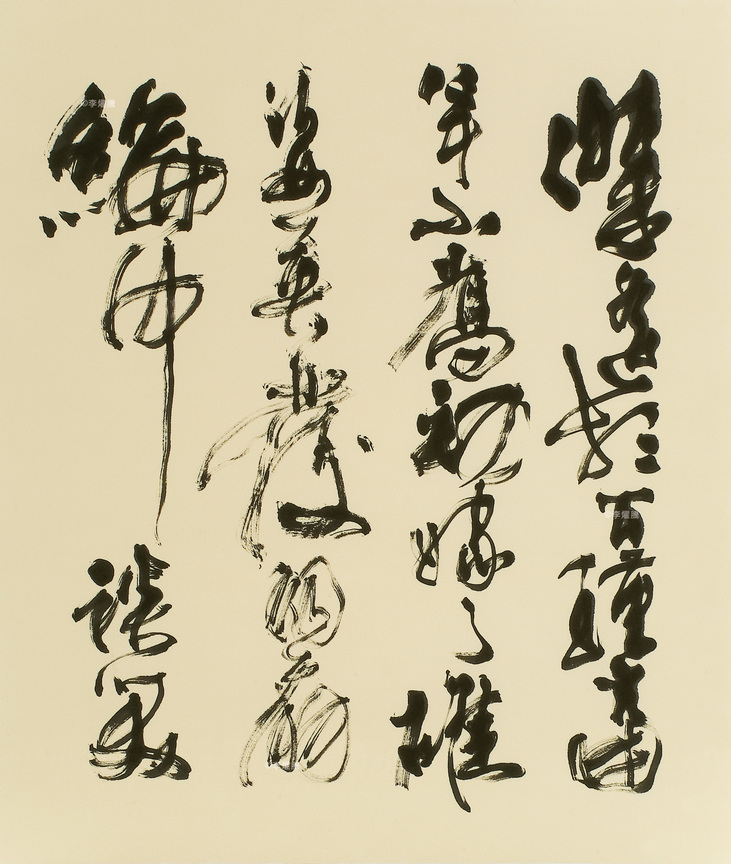 傑遙想公瑾當
年小喬初嫁了雄
姿英發羽扇
綸巾談笑